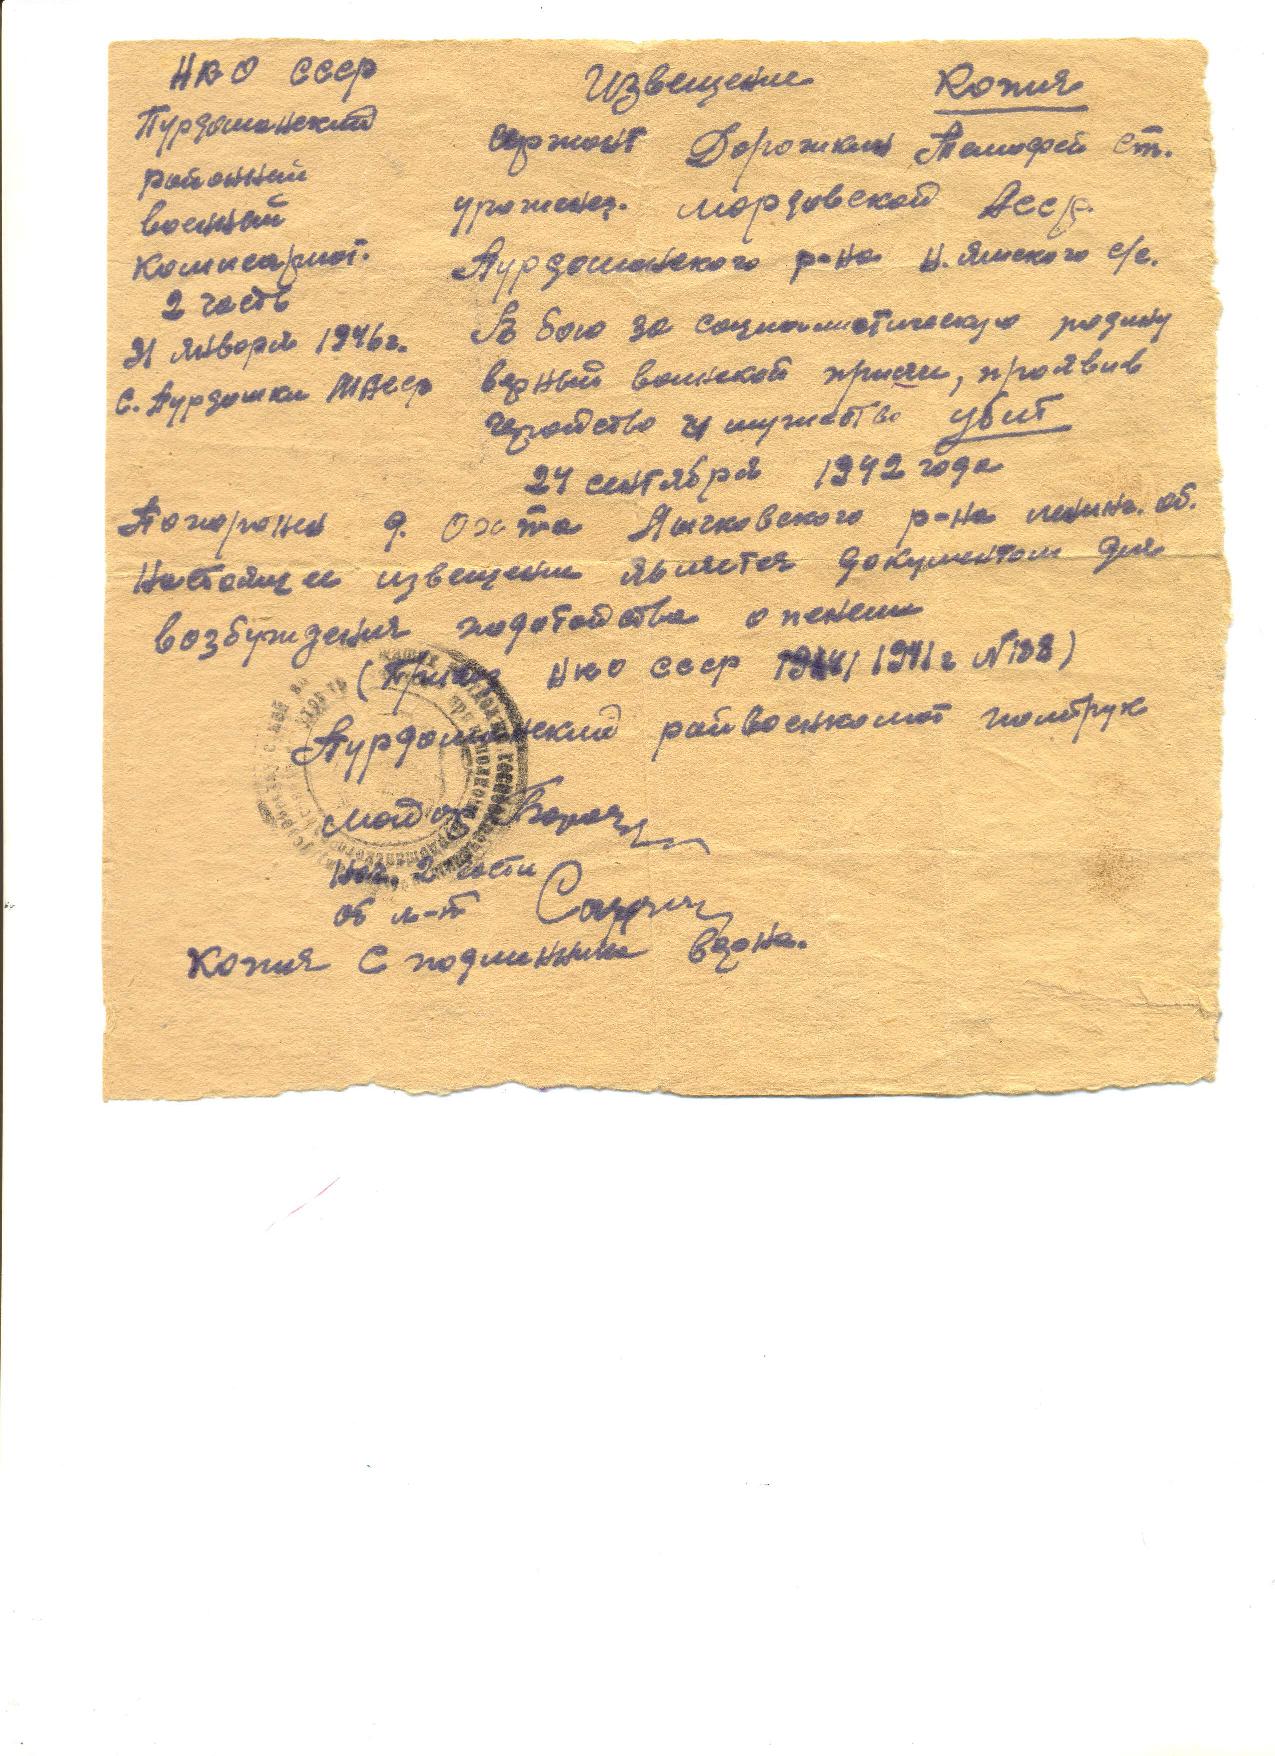 НКО СССР
Пурдошанский
районный
военный
комисариат.
2 часть
21 января 1946 г.
с. Пурдошки МАССР
Извещение Копия
сержант Дорожкин Тимофей Ст.
уроженец. Мордовской АССР.
Пурдошанского р-на Н. Ямского с/с.
В бою за социалистическую родину
верный воинской присяги, проявив
геройство и мужество убит
24 сентября 1942 года
Похоронен д. Охта Лычковского р-на ленин. об.
Настоящее извещение является документом для
возбуждения ходотойства о пенсии
(Приказ НКО СССР 1941 г №138)
Пурдошанский райвоенкомат политрук
майор
Нач. 2 части
об л-т
Копия с подлинным верна.